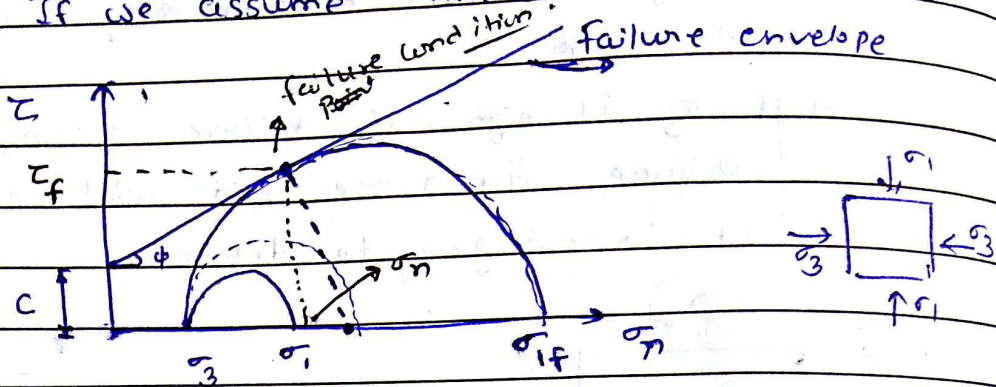 If we assume
failure condition
Point
failure envelope
τ
τf
φ
C
σn
σ3
σ1
σ1f
σn
σ1
σ3
σ3
σ1